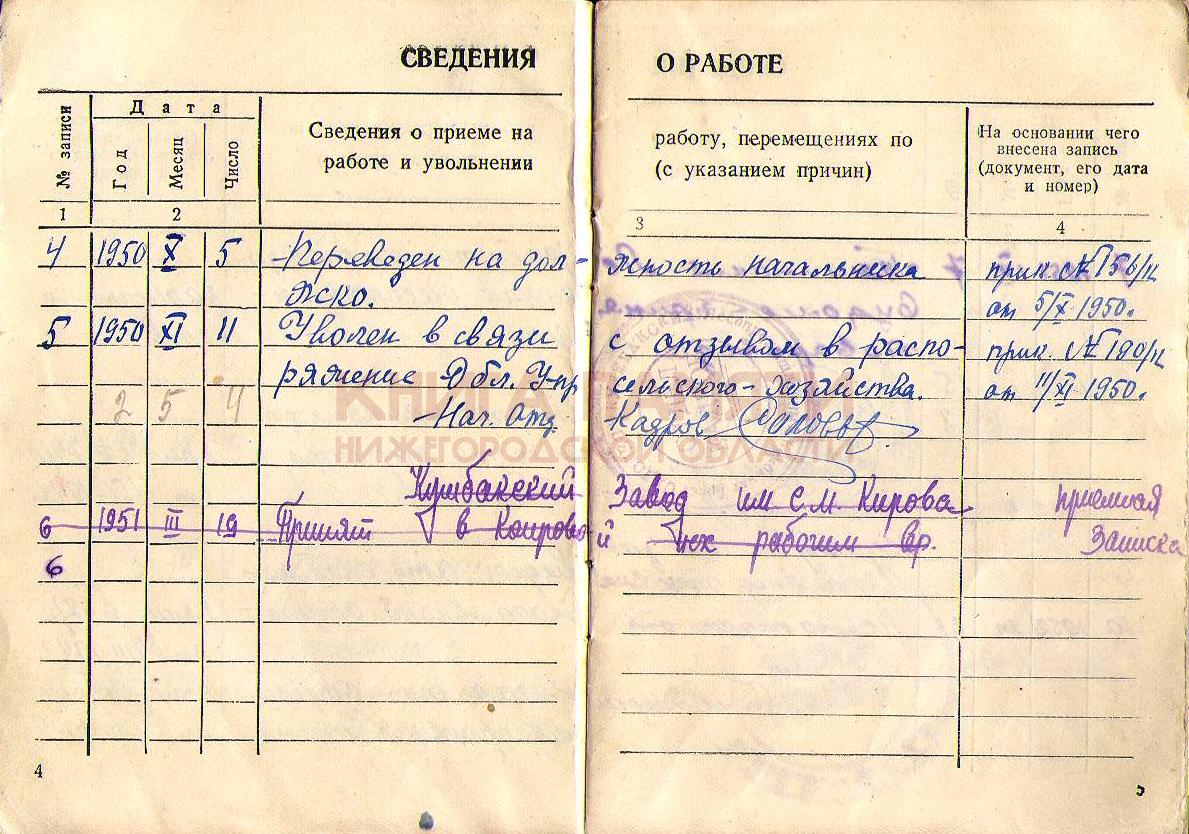 СВЕДЕНИЯ О РАБОТЕ
№ записи
Дата
Год
Месяц
Число
Сведения о приеме на работу, перемещениях по
работе и увольнении (с указанием причин)
На основании чего
внесена запись
(документ, его дата
и номер)
1 2 3 4
4 1950 X 5 Переведен на дол- жность начальника прик. № 156/к
от 5/X 1950.
5 1950 XI 11 Уволен в связи с отзывом в распо- прик. № 190/к
ряжение Обл. Упр сельского-хозяйства. от 11/XI 1950.
2 5 4
Нач. отд. Кадров
КНИГА ПАМЯТИ
НИЖЕГОРОДСКОЙ ОБЛАСТИ
Завод им С.М. Кирова приемная
6 1951 III 19 Принят в рабочим Записка
6
4
5